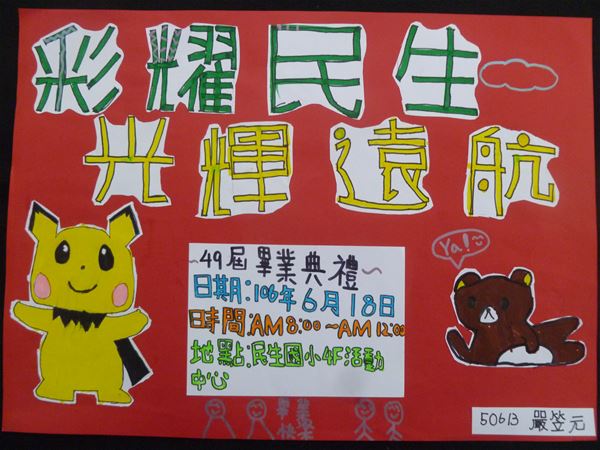 彩耀民生
光輝遠航
Ya!
~49屆畢業典禮~
日期:106年6月18日
時間:AM8:00~AM12:00
地點:民生國小4F活動
中心
畢業
快樂
50613 嚴笠元